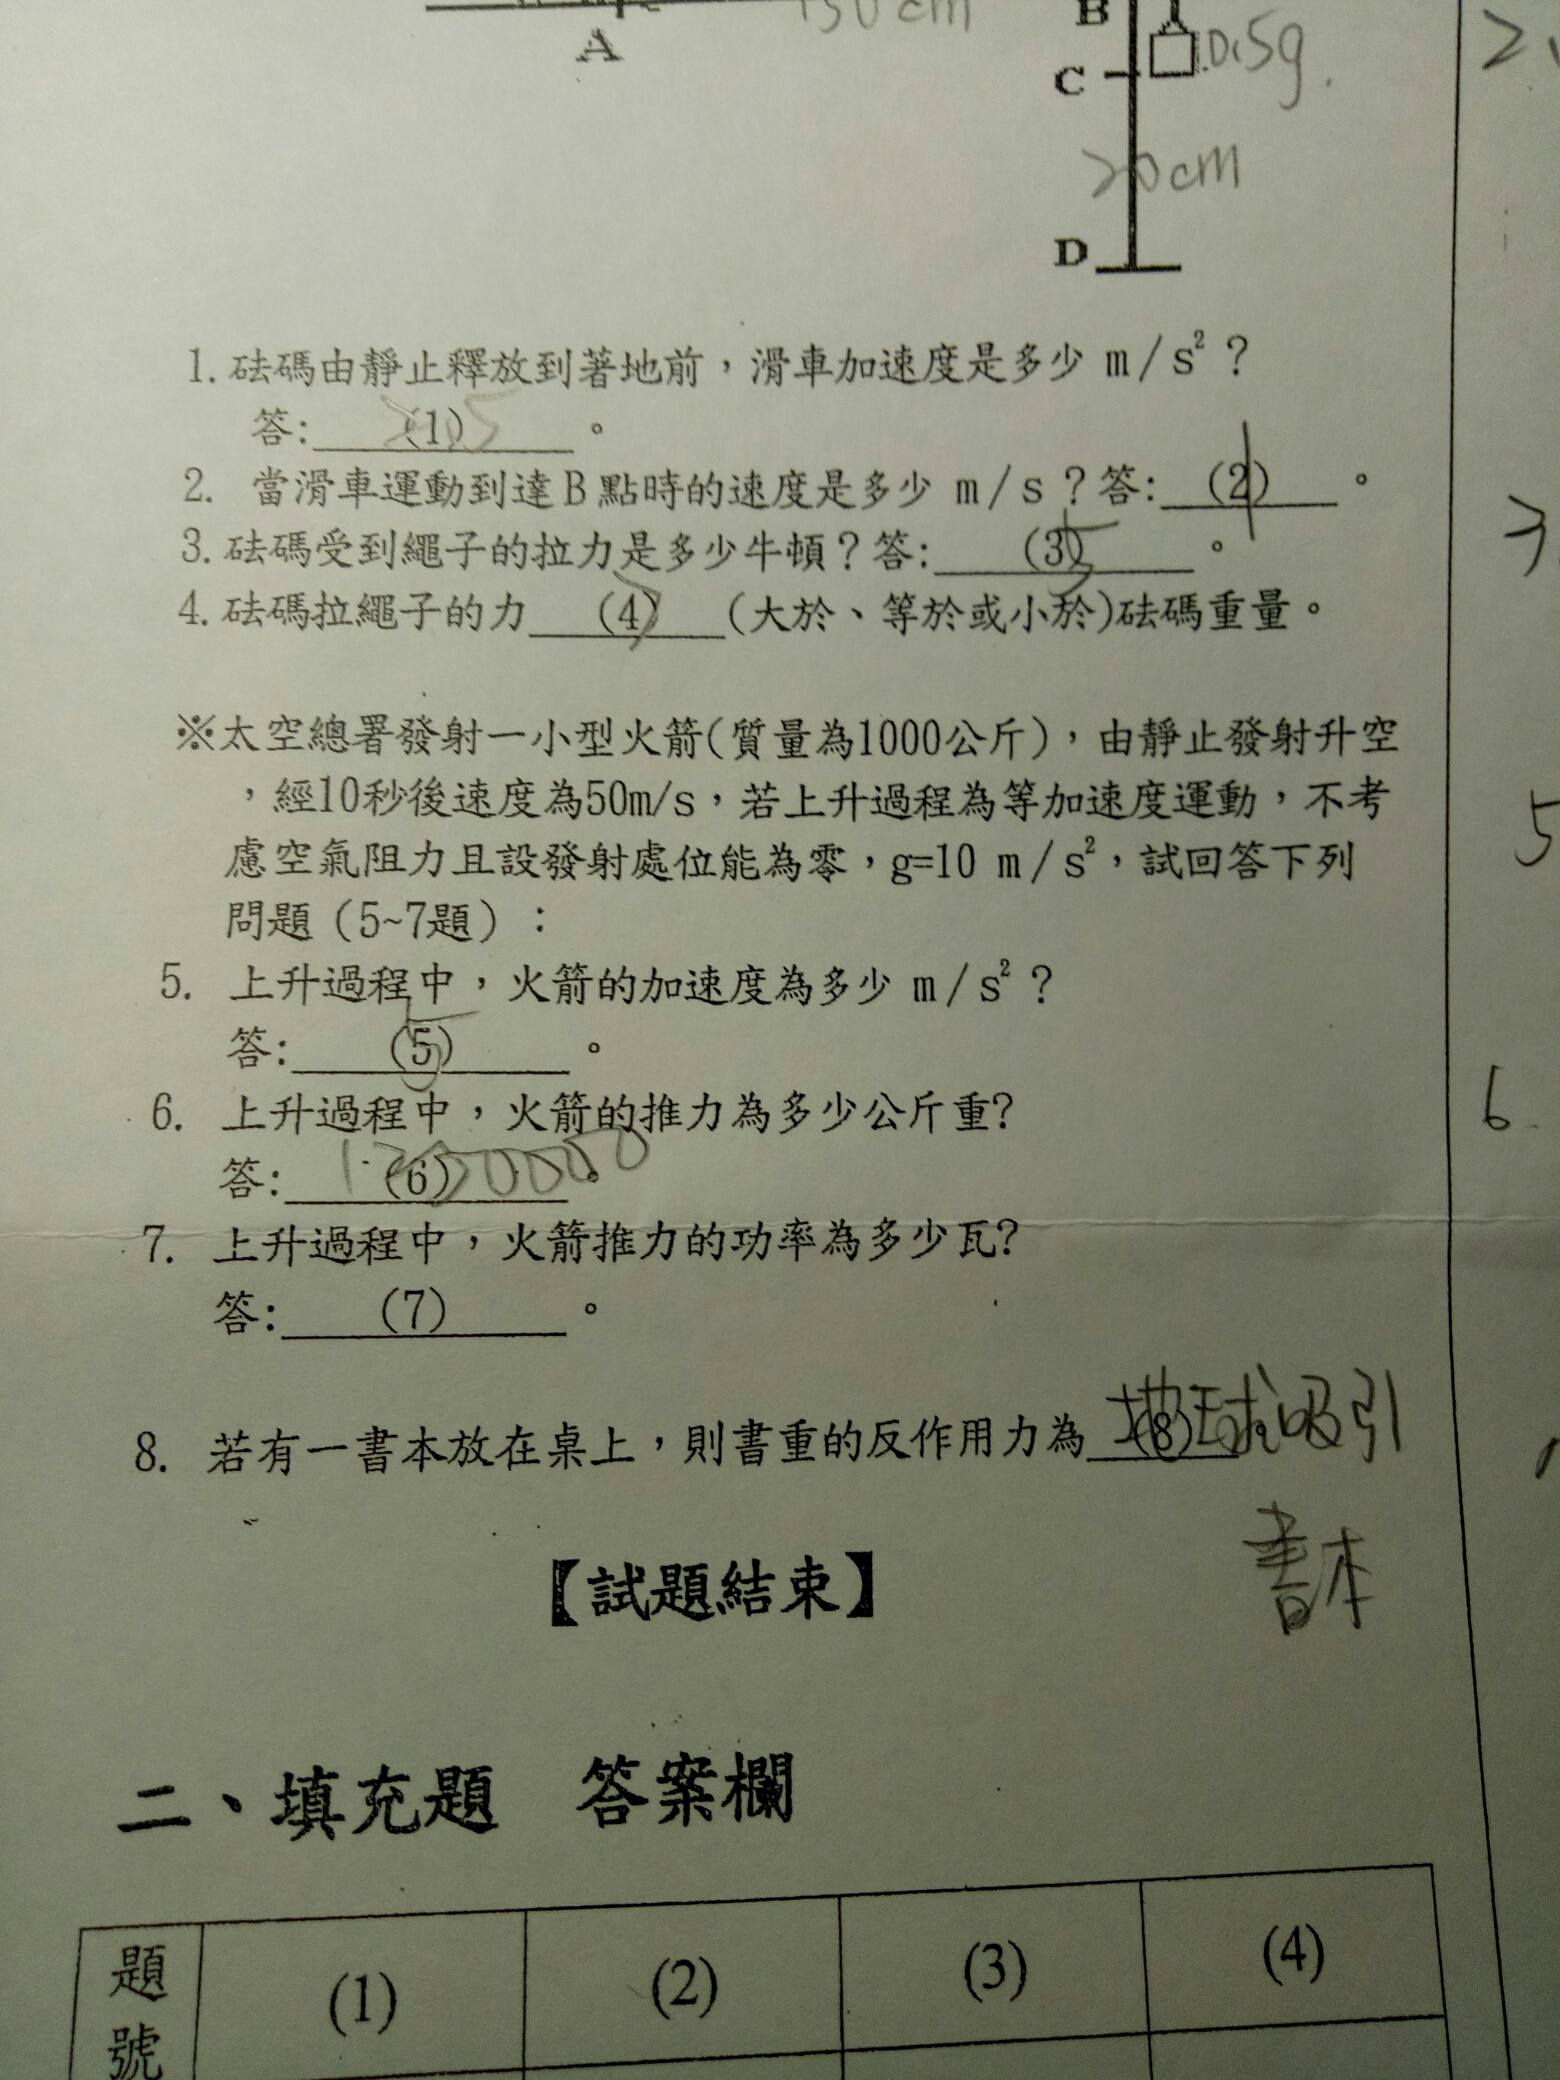 A
B
0.5g
C
20cm
D
1.砝碼由靜止釋放到著地前，滑車加速度是多少 m/s²？
答:(1)。
2. 當滑車運動到達B點時的速度是多少 m/s？答:(2)。
3.砝碼受到繩子的拉力是多少牛頓？答:(3)。
4.砝碼拉繩子的力(4)(大於、等於或小於)砝碼重量。
※太空總署發射一小型火箭(質量為1000公斤)，由靜止發射升空
，經10秒後速度為50m/s，若上升過程為等加速度運動，不考
慮空氣阻力且設發射處位能為零，g=10 m/s²，試回答下列
問題（5~7題）：
5. 上升過程中，火箭的加速度為多少 m/s²？
答:(5)。
6. 上升過程中，火箭的推力為多少公斤重?
答:(6)。
7. 上升過程中，火箭推力的功率為多少瓦?
答:(7)。
8. 若有一書本放在桌上，則書重的反作用力為(8)
地球吸引
書本
【試題結束】
二、填充題 答案欄
題號 (1) (2) (3) (4)
3
5
6